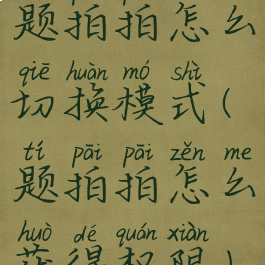 题拍拍怎么
qiē huàn mó shì
切换模式(
tí pāi pāi zěn me
题拍拍怎么
huò dé quán xiàn
获得权限)